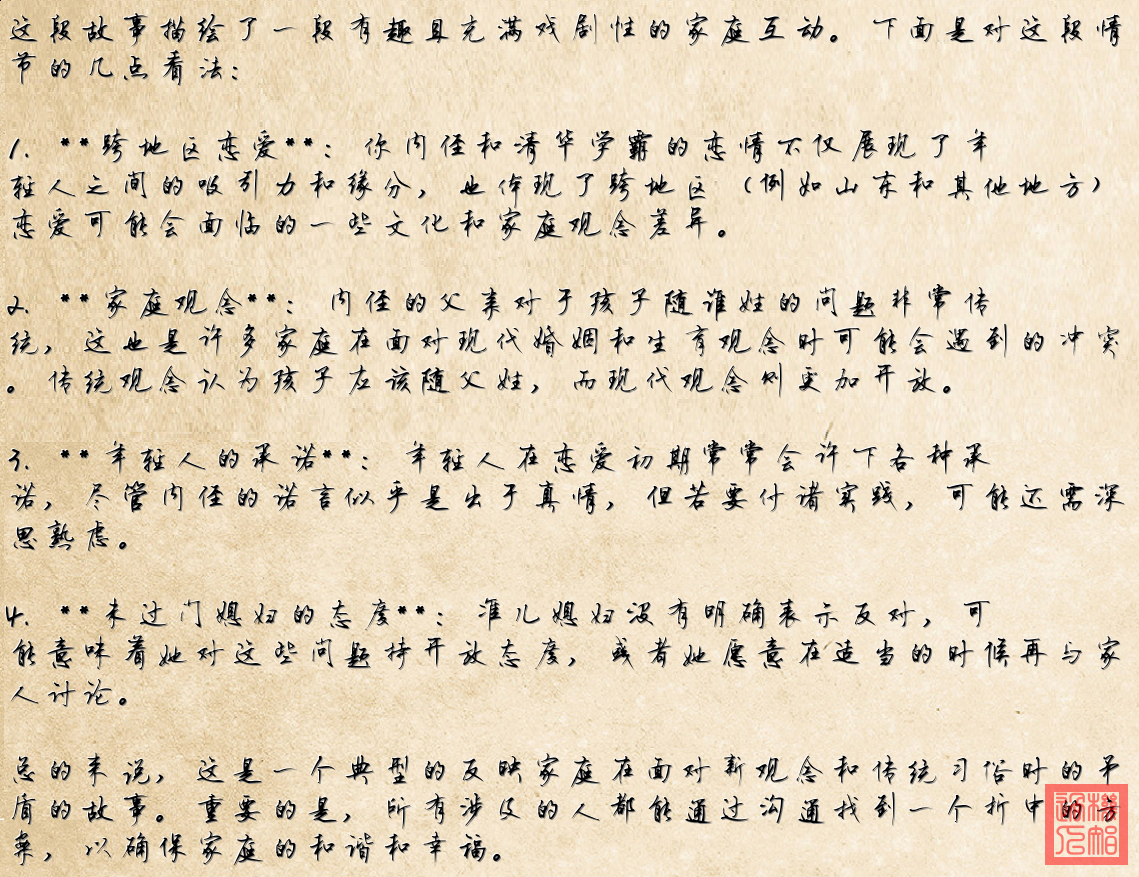 这段故事描绘了一段有趣且充满戏剧性的家庭互动。下面是对这段情
节的几点看法：
1. **跨地区恋爱**：你内侄和清华学霸的恋情不仅展现了年
轻人之间的吸引力和缘分，也体现了跨地区（例如山东和其他地方）
恋爱可能会面临的一些文化和家庭观念差异。
2. **家庭观念**：内侄的父亲对于孩子随谁姓的问题非常传
统，这也是许多家庭在面对现代婚姻和生育观念时可能会遇到的冲突
。传统观念认为孩子应该随父姓，而现代观念则更加开放。
3. **年轻人的承诺**：年轻人在恋爱初期常常会许下各种承
诺，尽管内侄的诺言似乎是出于真情，但若要付诸实践，可能还需深
思熟虑。
4. **未过门媳妇的态度**：准儿媳妇没有明确表示反对，可
能意味着她对这些问题持开放态度，或者她愿意在适当的时候再与家
人讨论。
总的来说，这是一个典型的反映家庭在面对新观念和传统习俗时的矛
盾的故事。重要的是，所有涉及的人都能通过沟通找到一个折中的方
案，以确保家庭的和谐和幸福。